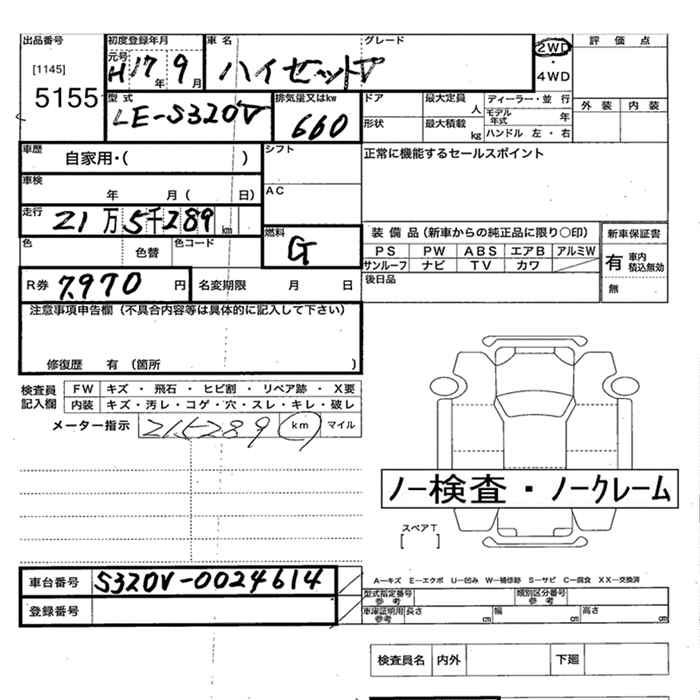 出品番号 初度登録年月 車名 グレード 2WD・4WD 評価点
[1145] 5155 元号 H17年 9月 ハイゼットV
型式 LE-S320V 排気量又はkw 660 ドア 最大定員 人 ディーラー・並行 外装 内装
形状 最大積載 kg モデル年式 年 ハンドル 左・右
車歴 自家用・( ) シフト 正常に機能するセールスポイント
車検 年 月( 日) AC
走行 21万5千289km 燃料 G 装備品(新車からの純正品に限り○印) 新車保証書
色 色替 色コード PS PW ABS エアB アルミW 有 車内積込無効
サンルーフ ナビ TV カワ
R券 7,970円 名変期限 月 日 後日品 無
注意事項申告欄(不具合内容等は具体的に記入して下さい)
修復歴 有(箇所 )
検査員記入欄 FW キズ・飛石・ヒビ割・リペア跡・X要
内装 キズ・汚レ・コゲ・穴・スレ・キレ・破レ
メーター指示 215289 km マイル
ノー検査・ノークレーム
スペアT
[ ]
車台番号 S320V-0024614 A―キズ E―エクボ U―凹み W―補修跡 S―サビ C―腐食 XX―交換済
型式指定番号 参考 類別区分番号 参考
登録番号 車庫証明用 参考 長さ cm 幅 cm 高さ cm
検査員名 内外 下廻